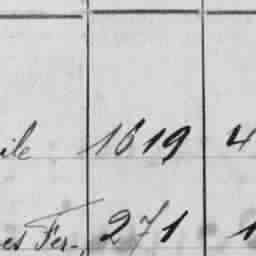 ile 1619 4
es Fer-, 271 1